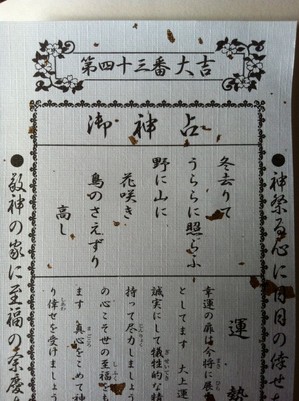 第四十三番大吉
御神占
冬去りて
うららに照らふ
野に山に
花咲き
鳥のさえずり
高し
●神祭る心に日日の倖せを
運勢
幸運の扉は今将に展
としてます 大上運
誠実にして犠牲的な精
持って尽力しましょう
の心こそ世の至福
ます 真心をこめて神
り倖せを受けましょう
●敬神の家に至福の